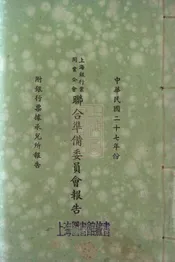 中華民國二十七年份
上海銀行業
同業公會
聯合準備委員會報告
附銀行票據承兌所報告
上海圖書館藏書